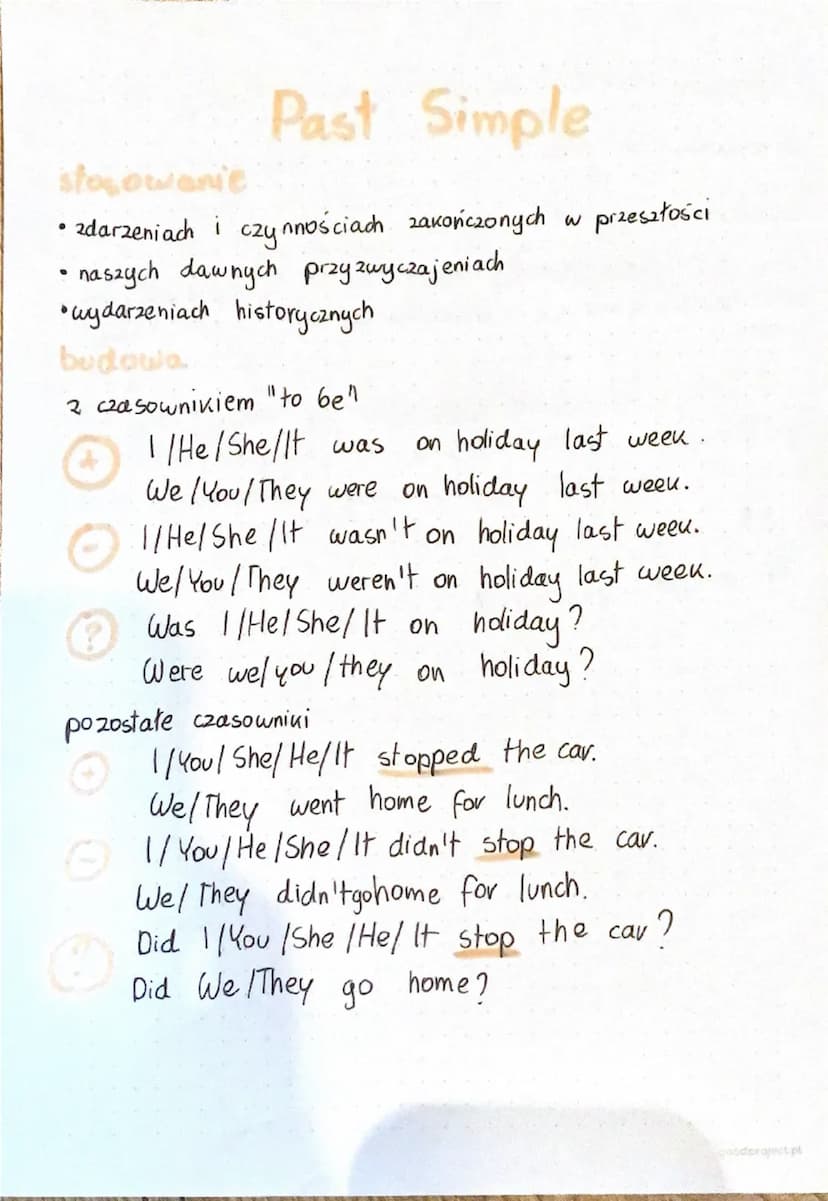 Past Simple
stosowanie
• zdarzeniach i czynnościach zakończonych w przeszłości
• naszych dawnych przyzwyczajeniach
• wydarzeniach historycznych
budowa
z czasownikiem "to be"
+ I/He/She/It was on holiday last week.
We/You/They were on holiday last week.
- I/He/She/It wasn't on holiday last week.
We/You/They weren't on holiday last week.
? Was I/He/She/It on holiday?
Were we/you/they on holiday?
pozostałe czasowniki
+ I/You/She/He/It stopped the car.
We/They went home for lunch.
- I/You/He/She/It didn't stop the car.
We/They didn't go home for lunch.
? Did I/You/She/He/It stop the car?
Did We/They go home?